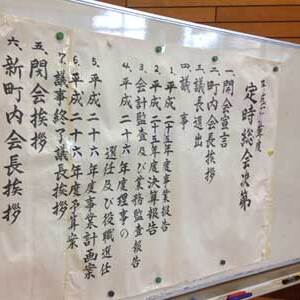 定時総会次第
一、開会宣言
二、町内会長挨拶
三、議長選出
四、議事
1、平成二十五年度事業報告
2、平成二十五年度決算報告
3、会計監査及び業務監査報告
4、平成二十六年度理事の
選任及び役職選任
5、平成二十六年度事業計画案
6、平成二十六年度予算案
7、議事終了議長挨拶
五、閉会挨拶
六、新町内会長挨拶